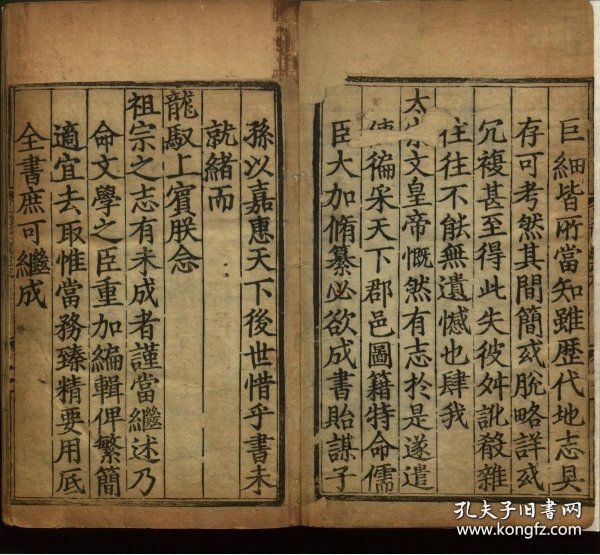 巨細皆所當知雖歷代地志具
存可考然其間簡或脫略詳或
冗複甚至得此失彼舛訛殽雜
往往不能無遺憾也肆我
太宗文皇帝慨然有志於是遂遣
使徧采天下郡邑圖籍特命儒
臣大加脩纂必欲成書貽謀子
孫以嘉惠天下後世惜乎書未
就緒而
龍馭上賓朕念
祖宗之志有未成者謹當繼述乃
命文學之臣重加編輯俾繁簡
適宜去取惟當務臻精要用底
全書庶可繼成
孔夫子旧书网
www.kongfz.com